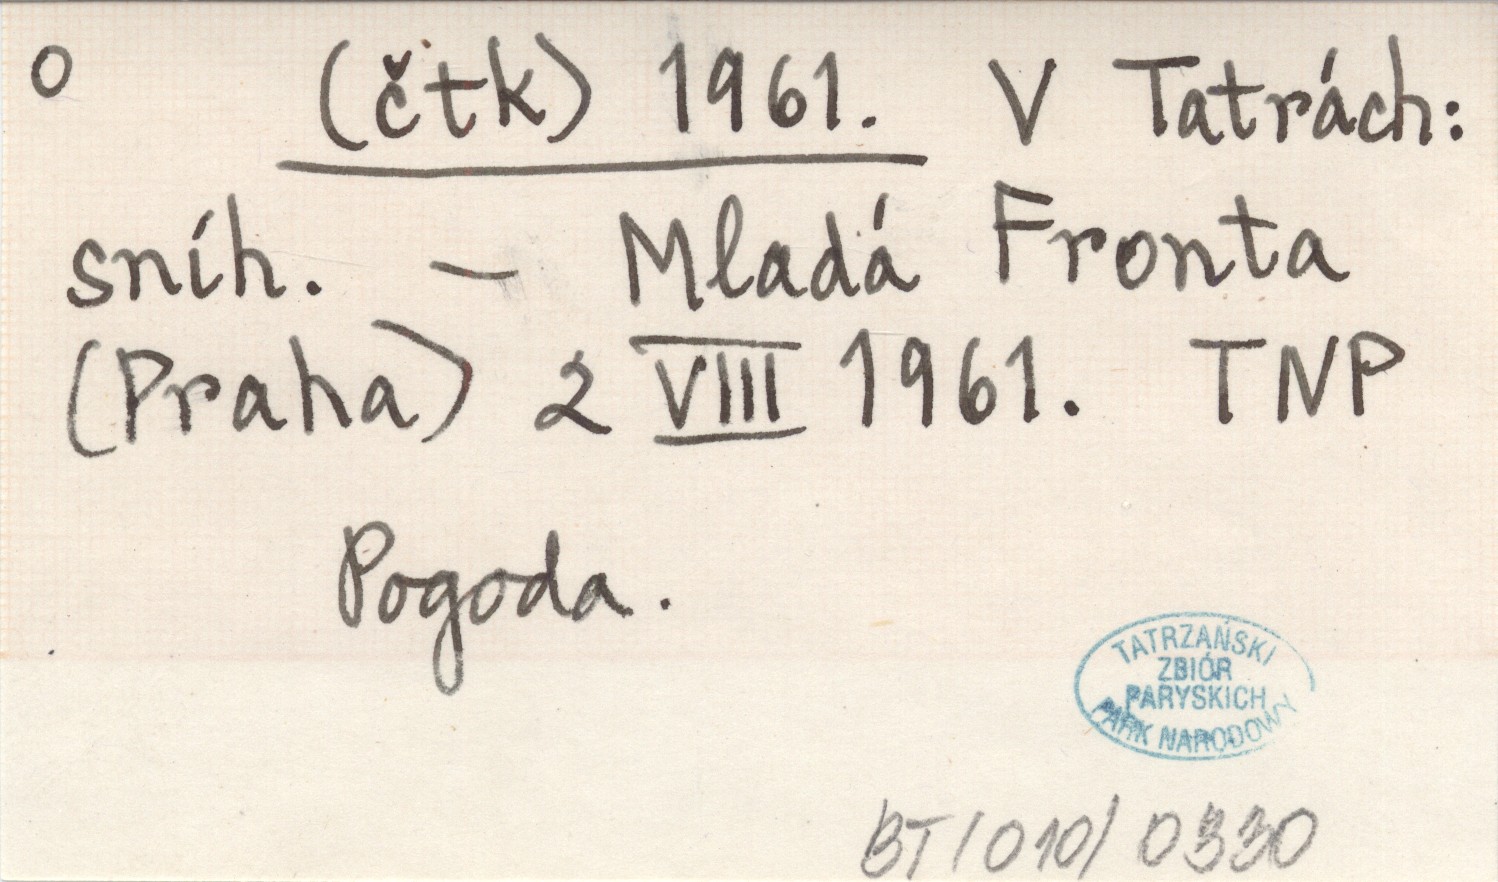 o (čtk) 1961. V Tatrách:
sníh. – Mladá Fronta
(Praha) 2 VIII 1961. TNP
Pogoda.
TATRZAŃSKI
ZBIÓR
PARYSKICH
PARK NARODOWY
BT/010/0330